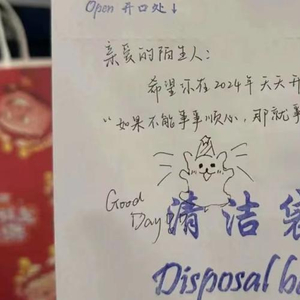 Open 开口处↓
亲爱的陌生人：
希望你在2024年天天开
"如果不能事事顺心，那就事
Good
Day!
清洁袋
Disposal b